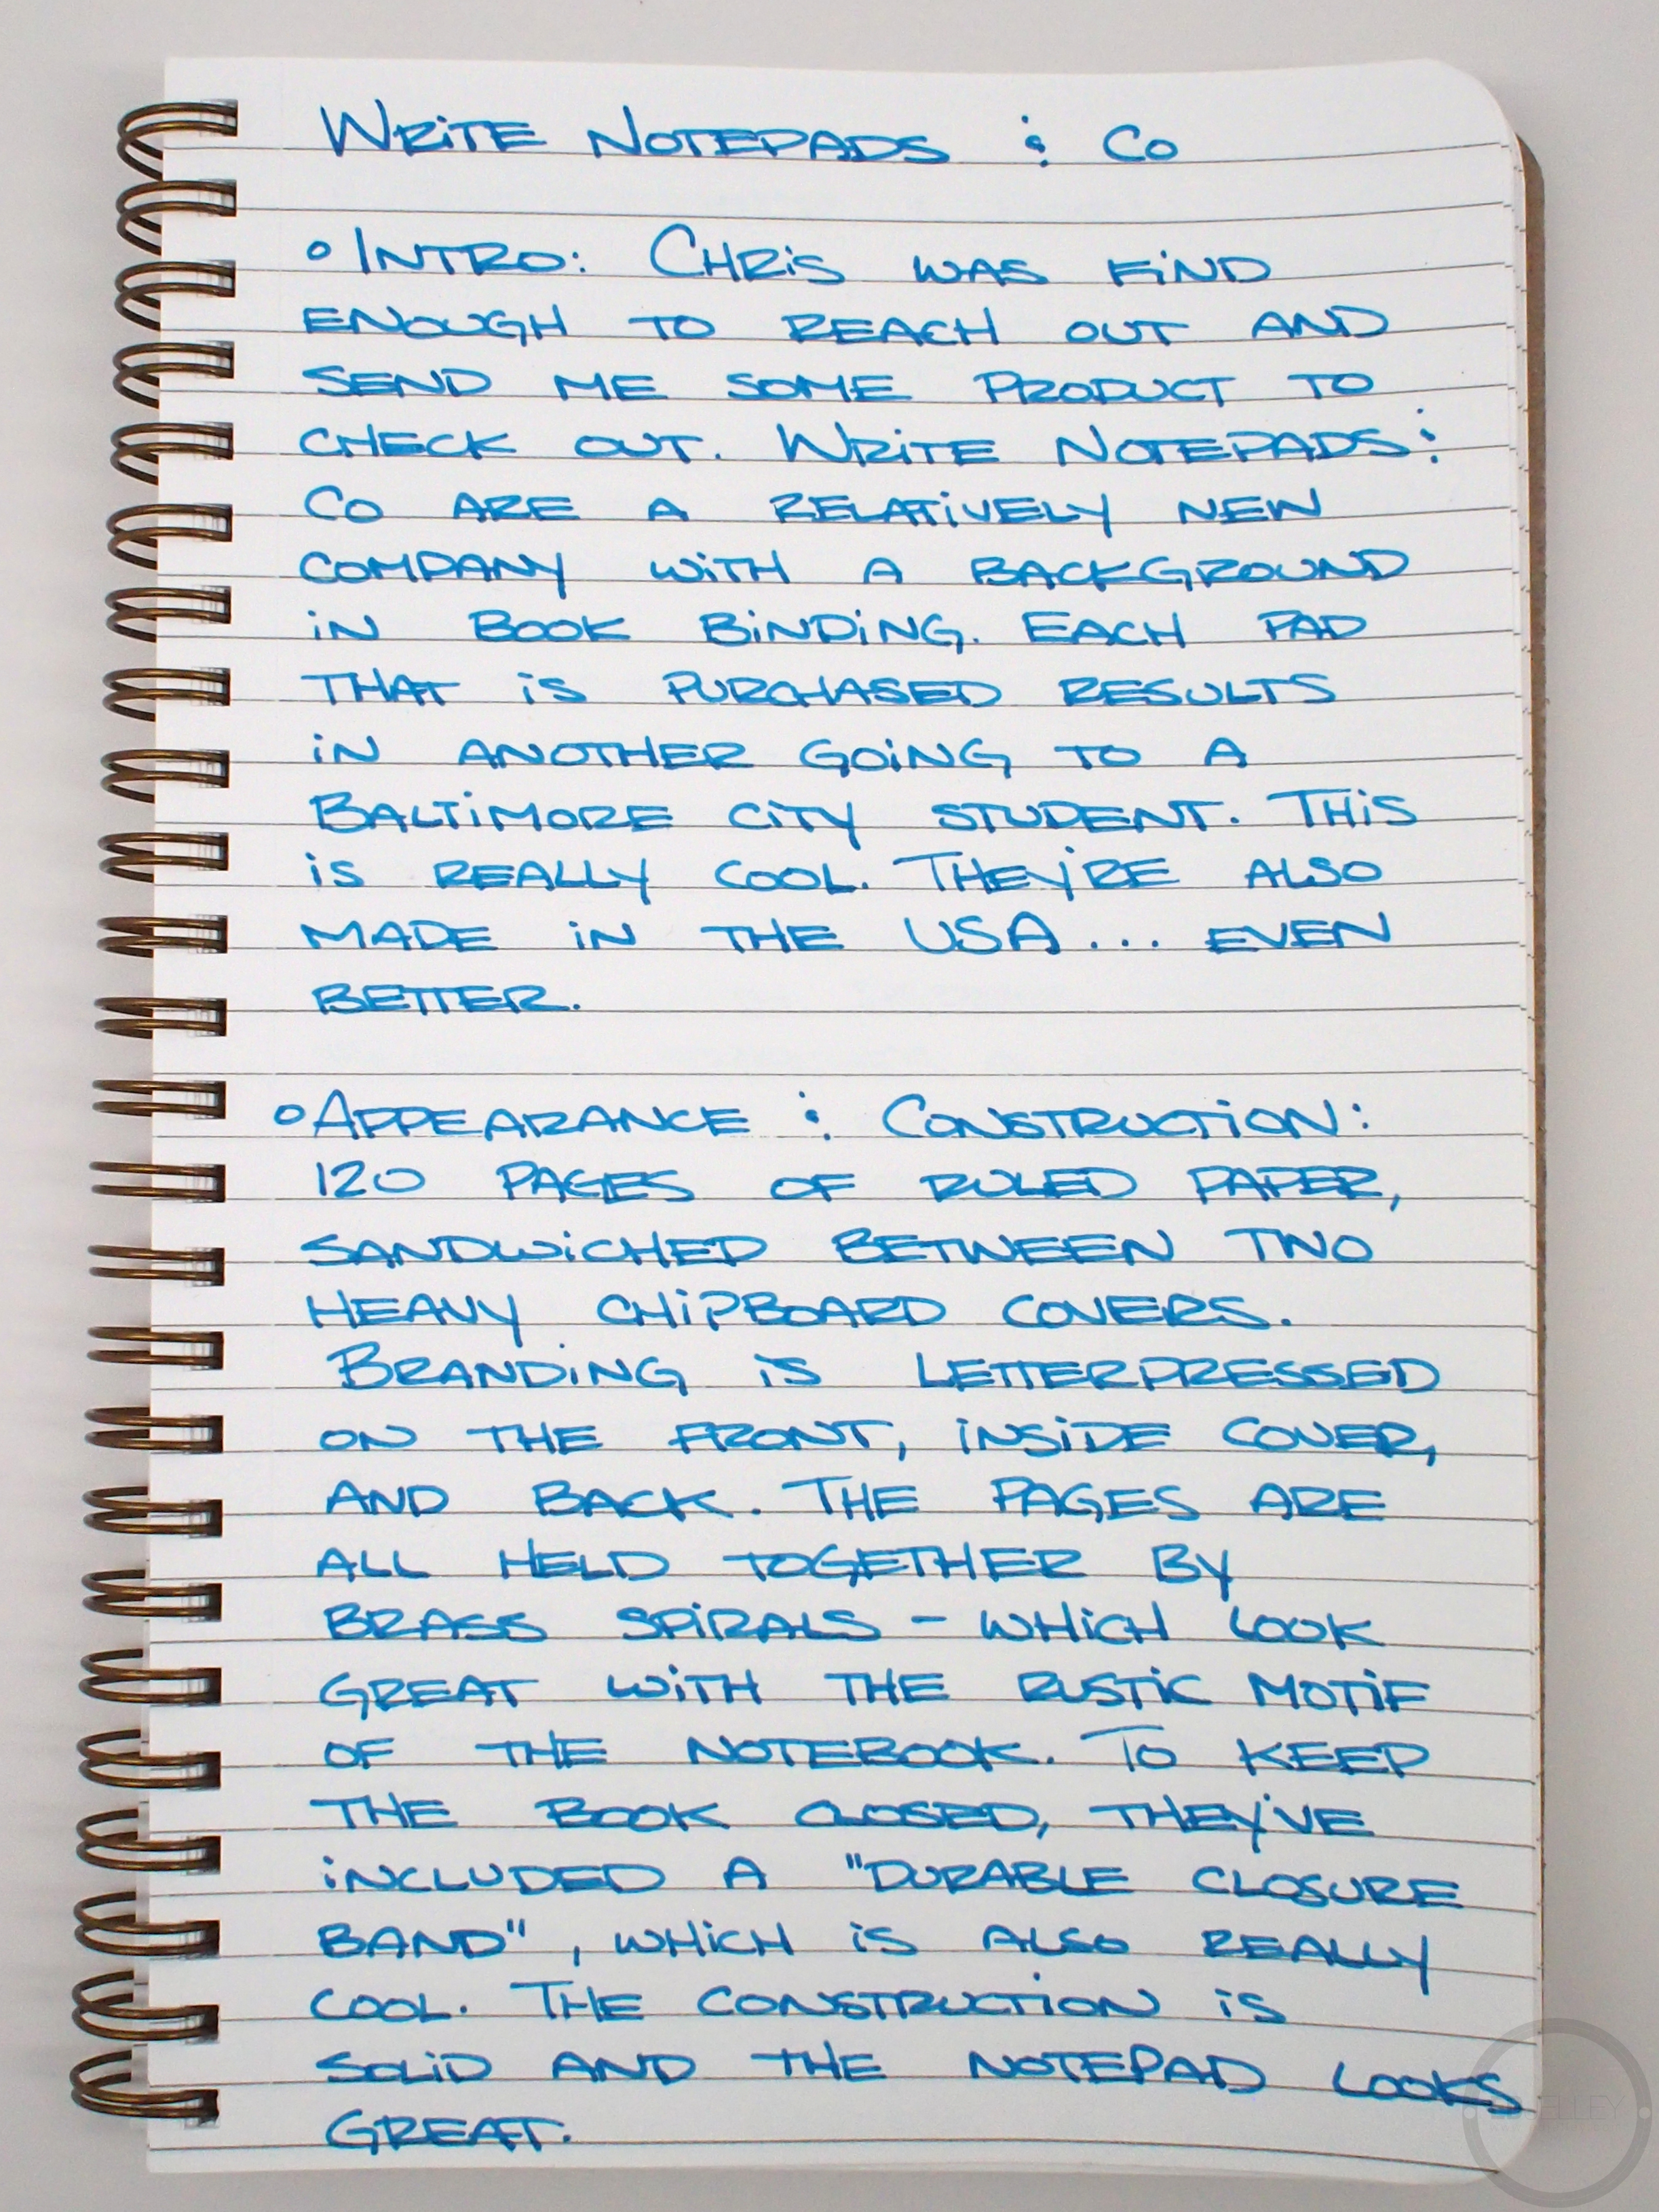 Write Notepads & Co
° Intro: Chris was kind
enough to reach out and
send me some product to
check out. Write Notepads &
Co are a relatively new
company with a background
in book binding. Each pad
that is purchased results
in another going to a
Baltimore City student. This
is really cool. They're also
made in the USA... even
better.
° Appearance & Construction:
120 pages of ruled paper,
sandwiched between two
heavy chipboard covers.
Branding is letterpressed
on the front, inside cover,
and back. The pages are
all held together by
brass spirals - which look
great with the rustic motif
of the notebook. To keep
the book closed, they've
included a "Durable Closure
Band", which is also really
cool. The construction is
solid and the notepad looks
great.